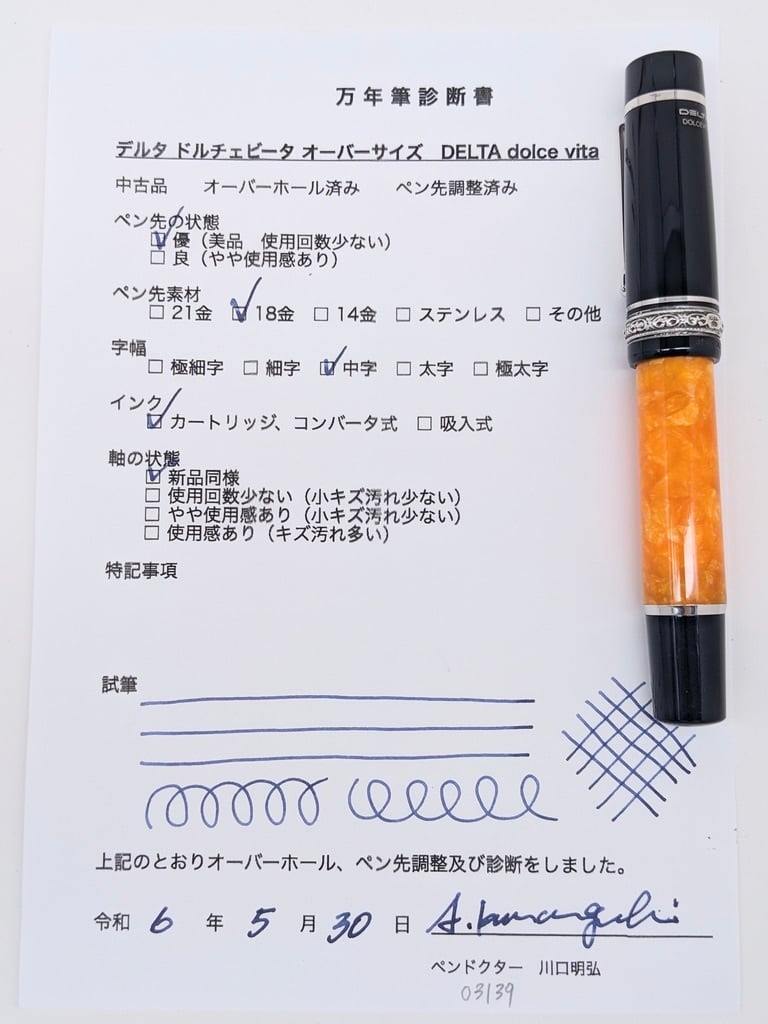 万年筆診断書
デルタ ドルチェビータ オーバーサイズ DELTA dolce vita
中古品 オーバーホール済み ペン先調整済み
ペン先の状態
☑ 優（美品 使用回数少ない）
☐ 良（やや使用感あり）
ペン先素材
☐ 21金 ☑ 18金 ☐ 14金 ☐ ステンレス ☐ その他
字幅
☐ 極細字 ☐ 細字 ☑ 中字 ☐ 太字 ☐ 極太字
インク
☑ カートリッジ、コンバータ式 ☐ 吸入式
軸の状態
☑ 新品同様
☐ 使用回数少ない（小キズ汚れ少ない）
☐ やや使用感あり（小キズ汚れ少ない）
☐ 使用感あり（キズ汚れ多い）
特記事項
試筆
上記のとおりオーバーホール、ペン先調整及び診断をしました。
令和 6 年 5 月 30 日
ペンドクター 川口明弘
03139